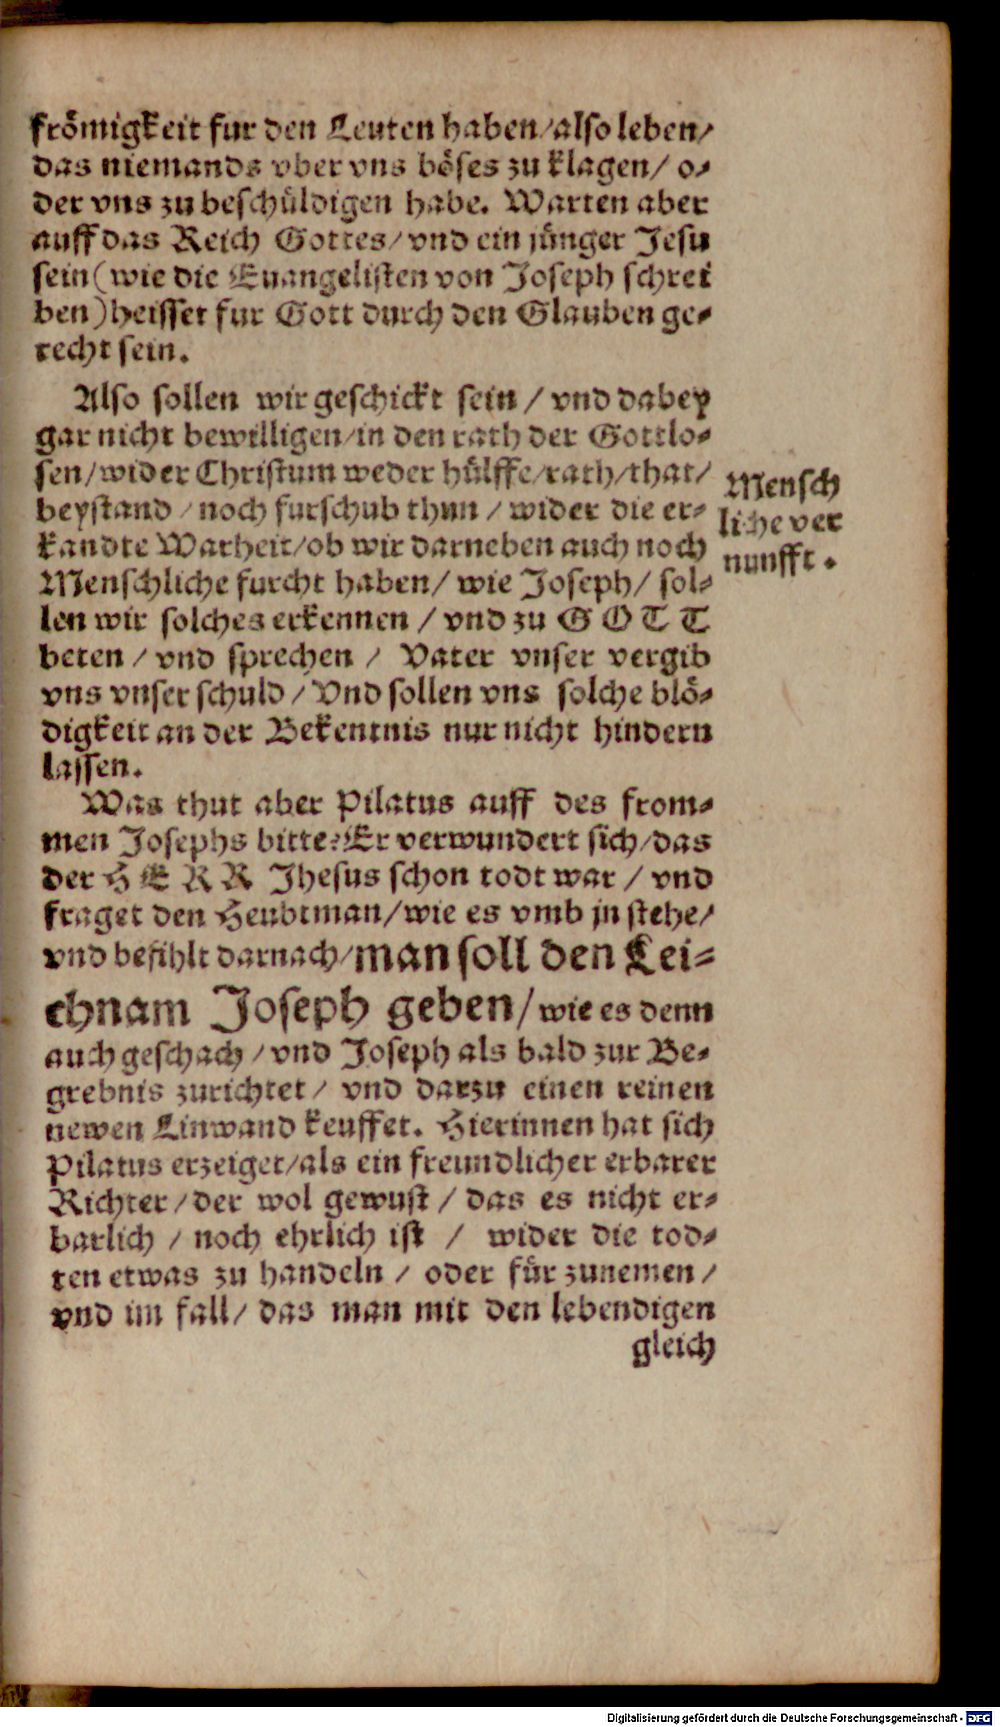 frömigkeit fur den Leuten haben/also leben/
das niemands vber vns böses zu klagen/ o-
der vns zu beschüldigen habe. Warten aber
auff das Reich Gottes/vnd ein jünger Jesu
sein (wie die Euangelisten von Joseph schrei
ben) heisset fur Gott durch den Glauben ge-
recht sein.
Also sollen wir geschickt sein / vnd dabey
gar nicht bewilligen/in den rath der Gottlo-
sen/wider Christum weder hülffe/rath/that/
beystand / noch furschub thun / wider die er-
kandte Warheit/ob wir darneben auch noch
Menschliche furcht haben/ wie Joseph/ sol-
len wir solches erkennen / vnd zu G O T T
beten / vnd sprechen / Vater vnser vergib
vns vnser schuld / Vnd sollen vns solche blö-
digkeit an der Bekentnis nur nicht hindern
lassen.
Mensch
liche ver
nunfft.
Was thut aber Pilatus auff des from-
men Josephs bitte? Er verwundert sich/das
der H E R R Jhesus schon todt war / vnd
fraget den Heubtman/wie es vmb jn stehe/
vnd befihlt darnach/man soll den Lei-
chnam Joseph geben/wie es denn
auch geschach / vnd Joseph als bald zur Be-
grebnis zurichtet/ vnd darzu einen reinen
newen Linwand keuffet. Hierinnen hat sich
Pilatus erzeiget/als ein freundlicher erbarer
Richter/der wol gewust / das es nicht er-
barlich / noch ehrlich ist / wider die tod-
ten etwas zu handeln / oder für zunemen /
vnd im fall/ das man mit den lebendigen
gleich
Digitalisierung gefördert durch die Deutsche Forschungsgemeinschaft - DFG